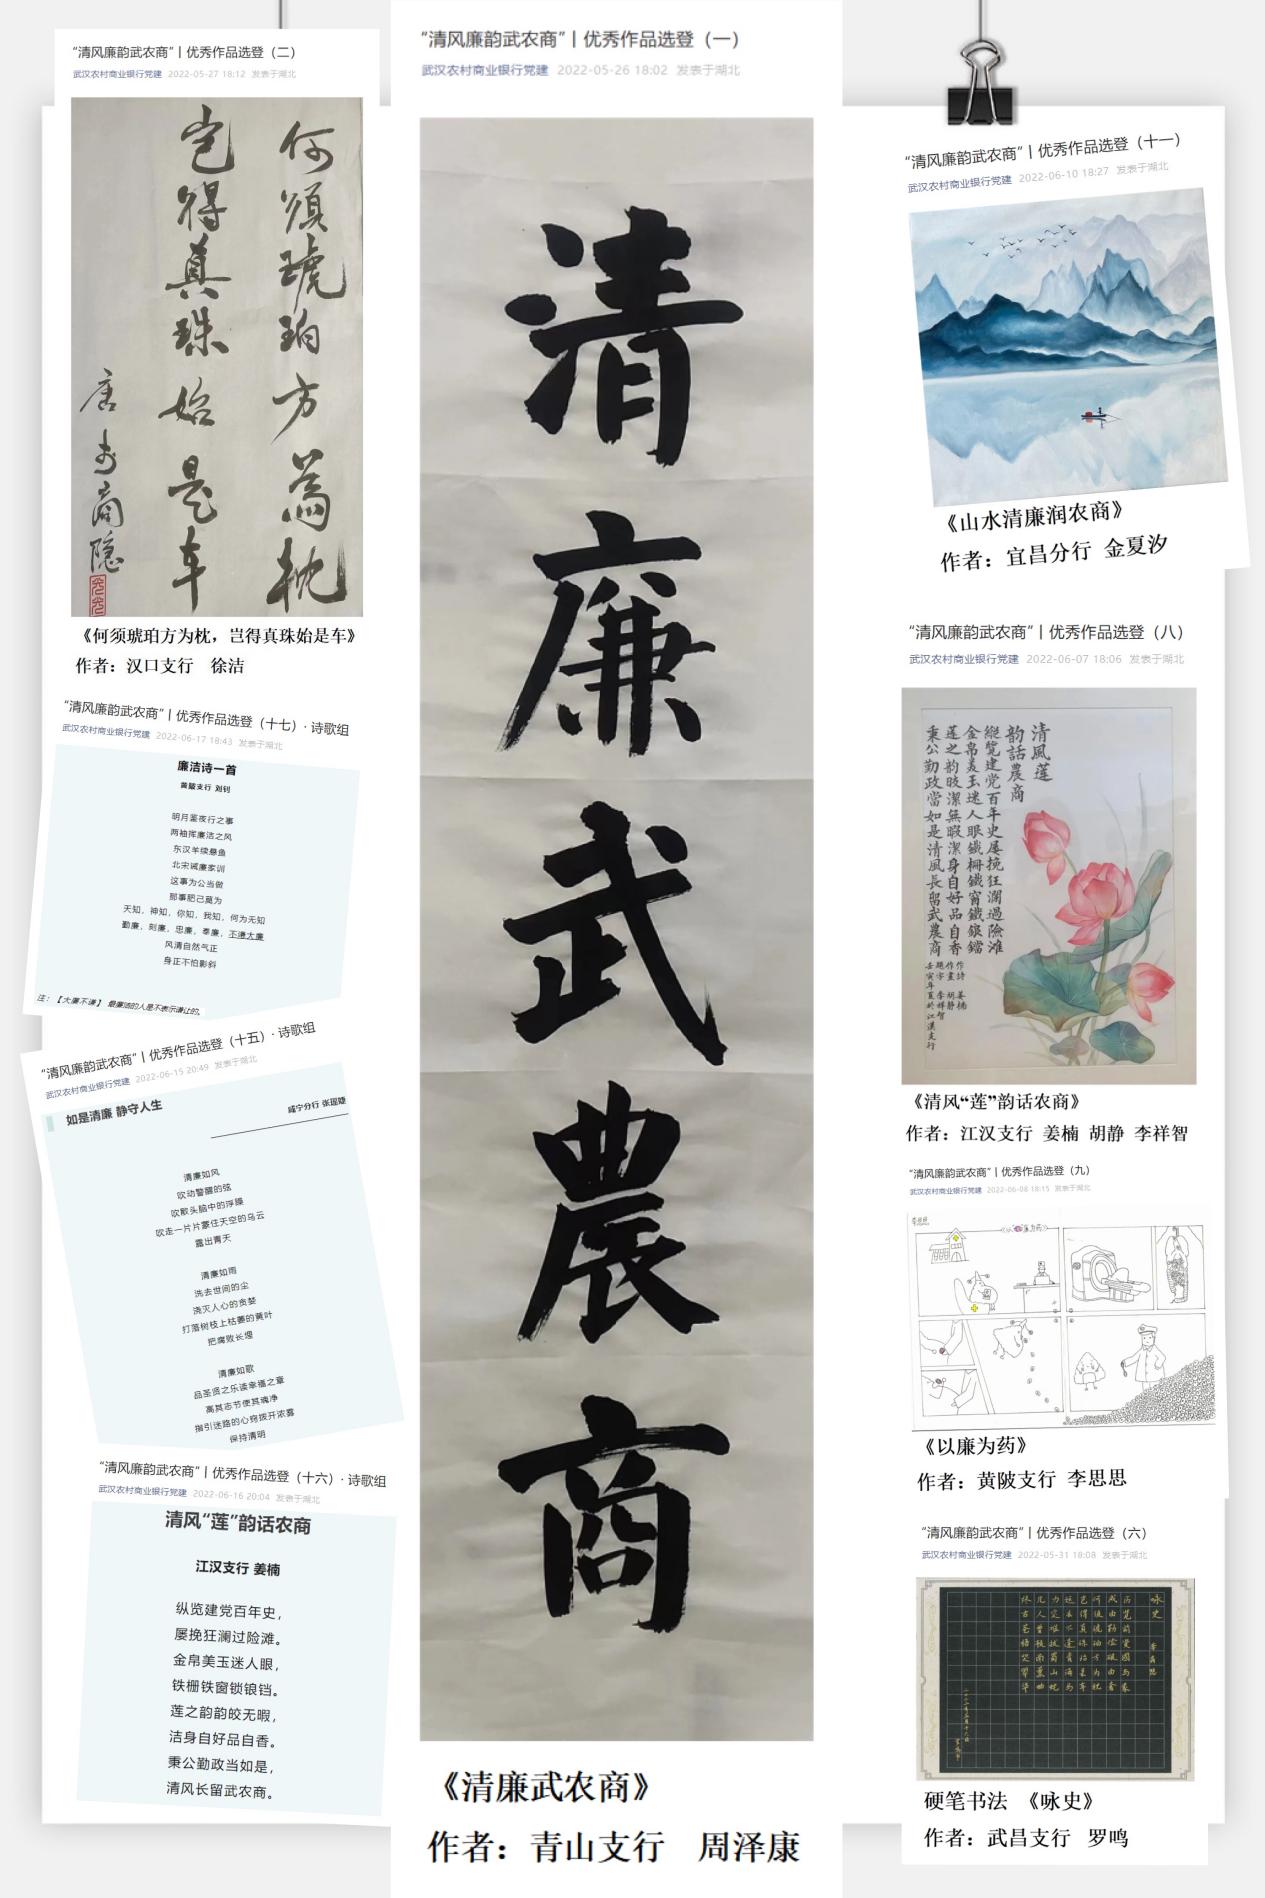 “清风廉韵武农商”丨优秀作品选登（二）
武汉农村商业银行党建 2022-05-27 18:12 发表于湖北
何須琥珀方為枕
豈得真珠始是车
唐李商隐
《何须琥珀方为枕，岂得真珠始是车》
作者：汉口支行 徐洁
“清风廉韵武农商”丨优秀作品选登（十七）· 诗歌组
武汉农村商业银行党建 2022-06-17 18:43 发表于湖北
廉洁诗一首
黄陂支行 刘钊
明月鉴夜行之事
两袖挥廉洁之风
东汉羊续悬鱼
北宋诫廉家训
这事为公当做
那事肥己莫为
天知，神知，你知，我知，何为无知
勤廉，刻廉，忠廉，奉廉，不谦大廉
风清自然气正
身正不怕影斜
注：【大廉不谦】 最廉洁的人是不表示谦让的。
“清风廉韵武农商”丨优秀作品选登（十五）· 诗歌组
武汉农村商业银行党建 2022-06-15 20:49 发表于湖北
如是清廉 静守人生
咸宁分行 张瑶婕
清廉如风
吹动警醒的弦
吹散头脑中的浮躁
吹走一片片蒙住天空的乌云
露出青天
清廉如雨
洗去世间的尘
浇灭人心的贪婪
打落树枝上枯萎的黄叶
把腐败长埋
清廉如歌
品圣贤之乐读幸福之章
高其志节使其魂净
指引迷路的心窍拨开浓雾
保持清明
“清风廉韵武农商”丨优秀作品选登（十六）· 诗歌组
武汉农村商业银行党建 2022-06-16 20:04 发表于湖北
清风“莲”韵话农商
江汉支行 姜楠
纵览建党百年史，
屡挽狂澜过险滩。
金帛美玉迷人眼，
铁栅铁窗锁锒铛。
莲之韵韵皎无暇，
洁身自好品自香。
秉公勤政当如是，
清风长留武农商。
“清风廉韵武农商”丨优秀作品选登（一）
武汉农村商业银行党建 2022-05-26 18:02 发表于湖北
清廉武農商
《清廉武农商》
作者：青山支行 周泽康
“清风廉韵武农商”丨优秀作品选登（十一）
武汉农村商业银行党建 2022-06-10 18:27 发表于湖北
《山水清廉润农商》
作者：宜昌分行 金夏汐
“清风廉韵武农商”丨优秀作品选登（八）
武汉农村商业银行党建 2022-06-07 18:06 发表于湖北
清風蓮
韵話農商
縱覽建党百年史屡挽狂瀾過險滩
金帛美玉迷人眼鐵柵鐵窗鐵鋃鐺
蓮之韵韵皎潔無暇潔身自好品自香
秉公勤政當如是清風長留武農商
作诗 姜楠
作畫 胡静
題字 李祥智
壬寅年夏於江漢支行
《清风“莲”韵话农商》
作者：江汉支行 姜楠 胡静 李祥智
“清风廉韵武农商”丨优秀作品选登（九）
武汉农村商业银行党建 2022-06-08 18:15 发表于湖北
《以廉为药》
作者：黄陂支行 李思思
“清风廉韵武农商”丨优秀作品选登（六）
武汉农村商业银行党建 2022-05-31 18:08 发表于湖北
咏史
李商隐
硬笔书法 《咏史》
作者：武昌支行 罗鸣